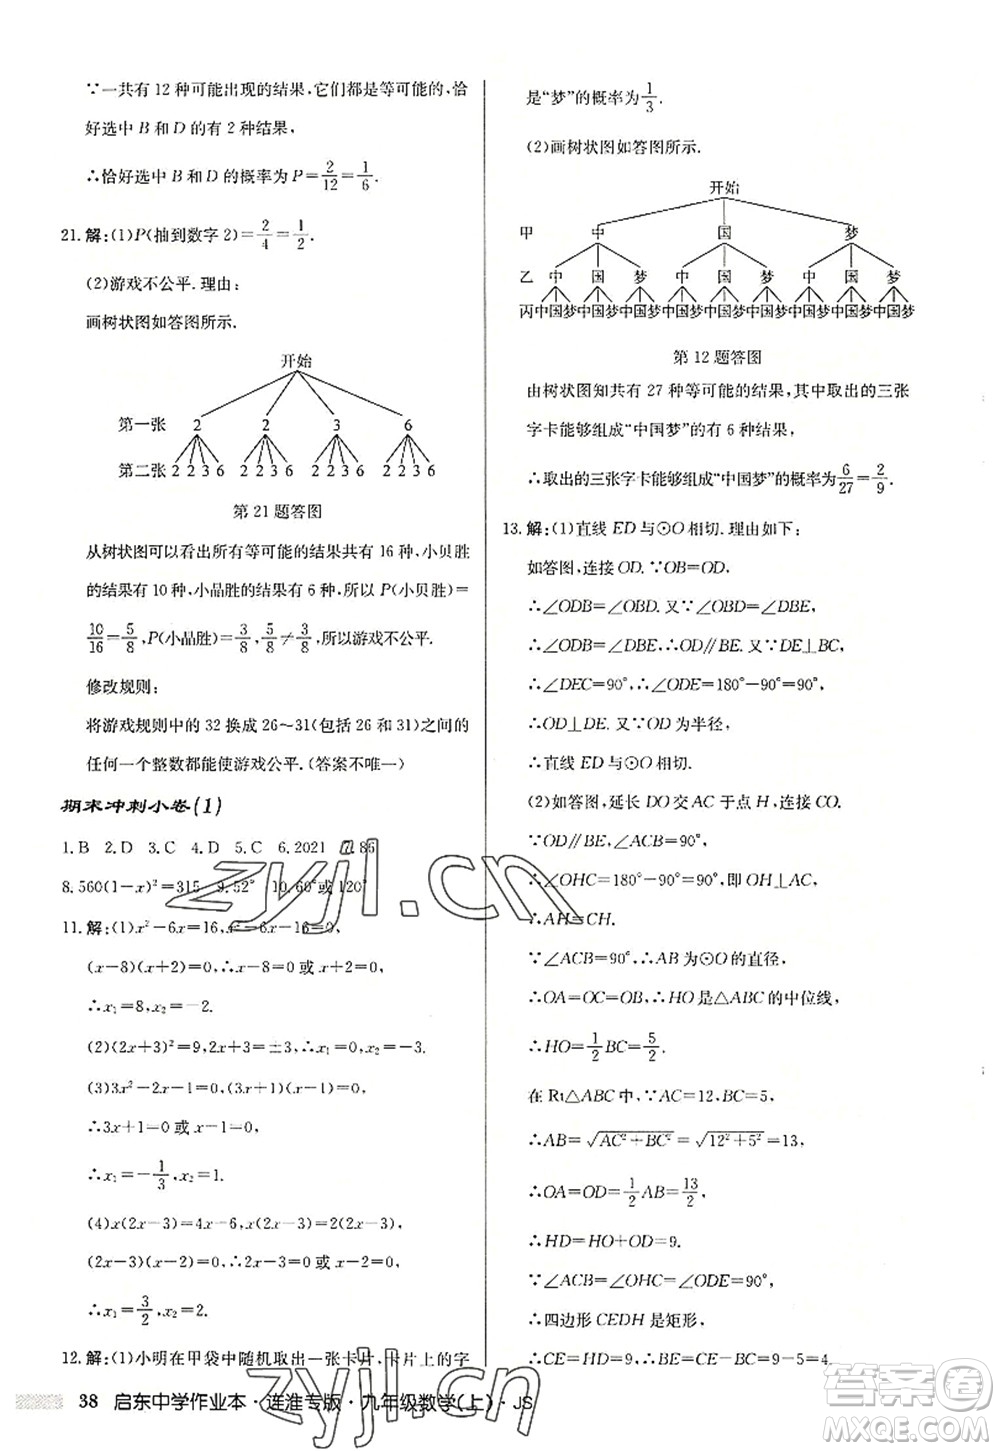 ∵一共有 12 种可能出现的结果,它们都是等可能的,恰
好选中 B 和 D 的有 2 种结果,
∴恰好选中 B 和 D 的概率为 P=2/12=1/6.
21.解:(1)P(抽到数字 2)=2/4=1/2.
(2)游戏不公平.理由:
画树状图如答图所示.
开始
第一张 2 2 3 6
第二张 2 2 3 6 2 2 3 6 2 2 3 6 2 2 3 6
第 21 题答图
从树状图可以看出所有等可能的结果共有 16 种,小贝胜
的结果有 10 种,小品胜的结果有 6 种,所以 P(小贝胜)=
10/16=5/8,P(小品胜)=3/8,5/8≠3/8,所以游戏不公平.
修改规则:
将游戏规则中的 32 换成 26～31(包括 26 和 31)之间的
任何一个整数都能使游戏公平.(答案不唯一)
期末冲刺小卷(1)
1.B 2.D 3.C 4.D 5.C 6.2021 7.86
8.560(1-x)²=315 9.52° 10.60°或 120°
11.解:(1)x²-6x=16,x²-6x-16=0,
(x-8)(x+2)=0,∴x-8=0 或 x+2=0,
∴x₁=8,x₂=-2.
(2)(2x+3)²=9,2x+3=±3,∴x₁=0,x₂=-3.
(3)3x²-2x-1=0,(3x+1)(x-1)=0,
∴3x+1=0 或 x-1=0,
∴x₁=-1/3,x₂=1.
(4)x(2x-3)=4x-6,x(2x-3)-2(2x-3)=0,
(2x-3)(x-2)=0,∴2x-3=0 或 x-2=0,
∴x₁=3/2,x₂=2.
12.解:(1)小明在甲袋中随机取出一张卡片,卡片上的字
是“梦”的概率为1/3.
(2)画树状图如答图所示.
开始
甲 中 国 梦
乙 中 国 梦 中 国 梦 中 国 梦
丙 中国梦 中国梦 中国梦 中国梦 中国梦 中国梦 中国梦 中国梦 中国梦
第 12 题答图
由树状图知共有 27 种等可能的结果,其中取出的三张
字卡能够组成“中国梦”的有 6 种结果,
∴取出的三张字卡能够组成“中国梦”的概率为6/27=2/9.
13.解:(1)直线 ED 与⊙O 相切.理由如下:
如答图,连接 OD.∵OB=OD,
∴∠ODB=∠OBD.又∵∠OBD=∠DBE,
∴∠ODB=∠DBE,∴OD∥BE.又∵DE⊥BC,
∴∠DEC=90°,∴∠ODE=180°-90°=90°,
∴OD⊥DE.又∵OD 为半径,
∴直线 ED 与⊙O 相切.
(2)如答图,延长 DO 交 AC 于点 H,连接 CO.
∵OD∥BE,∠ACB=90°,
∴∠OHC=180°-90°=90°,即 OH⊥AC,
∴AH=CH.
∵∠ACB=90°,∴AB 为⊙O 的直径,
∴OA=OC=OB,∴HO 是△ABC 的中位线,
∴HO=1/2BC=5/2.
在 Rt△ABC 中,∵AC=12,BC=5,
∴AB=√(AC²+BC²)=√(12²+5²)=13,
∴OA=OD=1/2AB=13/2,
∴HD=HO+OD=9.
∵∠ACB=∠CHD=∠ODE=90°,
∴四边形 CEDH 是矩形,
∴CE=HD=9,∴BE=CE-BC=9-5=4.
38 启东中学作业本·连淮专版·九年级数学(上)·JS
zyjl.cn
zyjl.cn